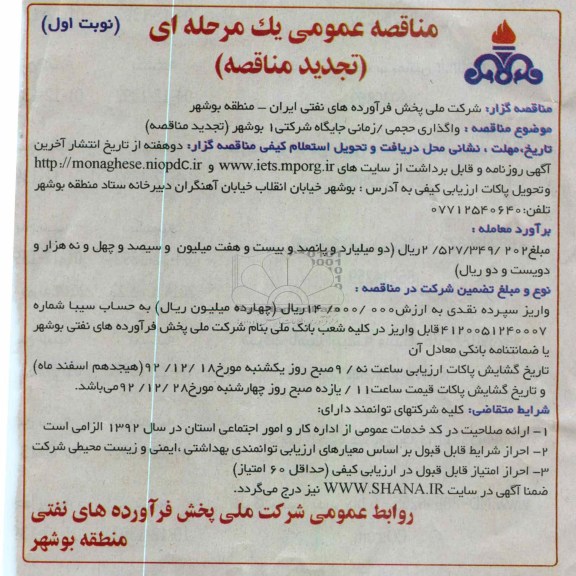 مناقصه عمومی یك مرحله ای
(نوبت اول)
(تجدید مناقصه)
مناقصه گزار: شرکت ملی پخش فرآورده های نفتی ایران – منطقه بوشهر
موضوع مناقصه : واگذاری حجمی /زمانی جایگاه شرکتی۱ بوشهر (تجدید مناقصه)
تاریخ،مهلت ، نشانی محل دریافت و تحویل استعلام کیفی مناقصه گزار: دوهفته از تاریخ انتشار آخرین
آگهی روزنامه و قابل برداشت از سایت های www.iets.mporg.ir و http://monaghese.niopdc.ir
وتحویل پاکات ارزیابی کیفی به آدرس : بوشهر خیابان انقلاب خیابان آهنگران دبیرخانه ستاد منطقه بوشهر
تلفن:۰۷۷۱۲۵۴۰۶۴۰
برآورد معامله :
مبلغ۲۰۲ /۳۴۹/ ۵۲۷/ ۲ریال (دو میلیارد و پانصد و بیست و هفت میلیون و سیصد و چهل و نه هزار و
دویست و دو ریال)
نوع و مبلغ تضمین شرکت در مناقصه :
واریز سپرده نقدی به ارزش۰۰۰ /۰۰۰/ ۱۴ریال (چهارده میلیون ریال) به حساب سیبا شماره
۴۱۲۰۰۵۱۲۴۰۰۰۷قابل واریز در کلیه شعب بانک ملی بنام شرکت ملی پخش فرآورده های نفتی بوشهر
یا ضمانتنامه بانکی معادل آن
تاریخ گشایش پاکات ارزیابی ساعت نه / ۹صبح روز یکشنبه مورخ۱۸ /۱۲/ ۹۲(هیجدهم اسفند ماه)
و تاریخ گشایش پاکات قیمت ساعت۱۱ / یازده صبح روز چهارشنبه مورخ۲۸ /۱۲/ ۹۲می‌باشد.
شرایط متقاضی: کلیه شرکتهای توانمند دارای:
۱– ارائه صلاحیت در کد خدمات عمومی از اداره کار و امور اجتماعی استان در سال ۱۳۹۲ الزامی است
۲– احراز شرایط قابل قبول بر اساس معیارهای ارزیابی توانمندی بهداشتی ،ایمنی و زیست محیطی شرکت
۳– احراز امتیاز قابل قبول در ارزیابی کیفی (حداقل ۶۰ امتیاز)
ضمنا آگهی در سایت WWW.SHANA.IR نیز درج می‌گردد.
روابط عمومی شرکت ملی پخش فرآورده های نفتی
منطقه بوشهر